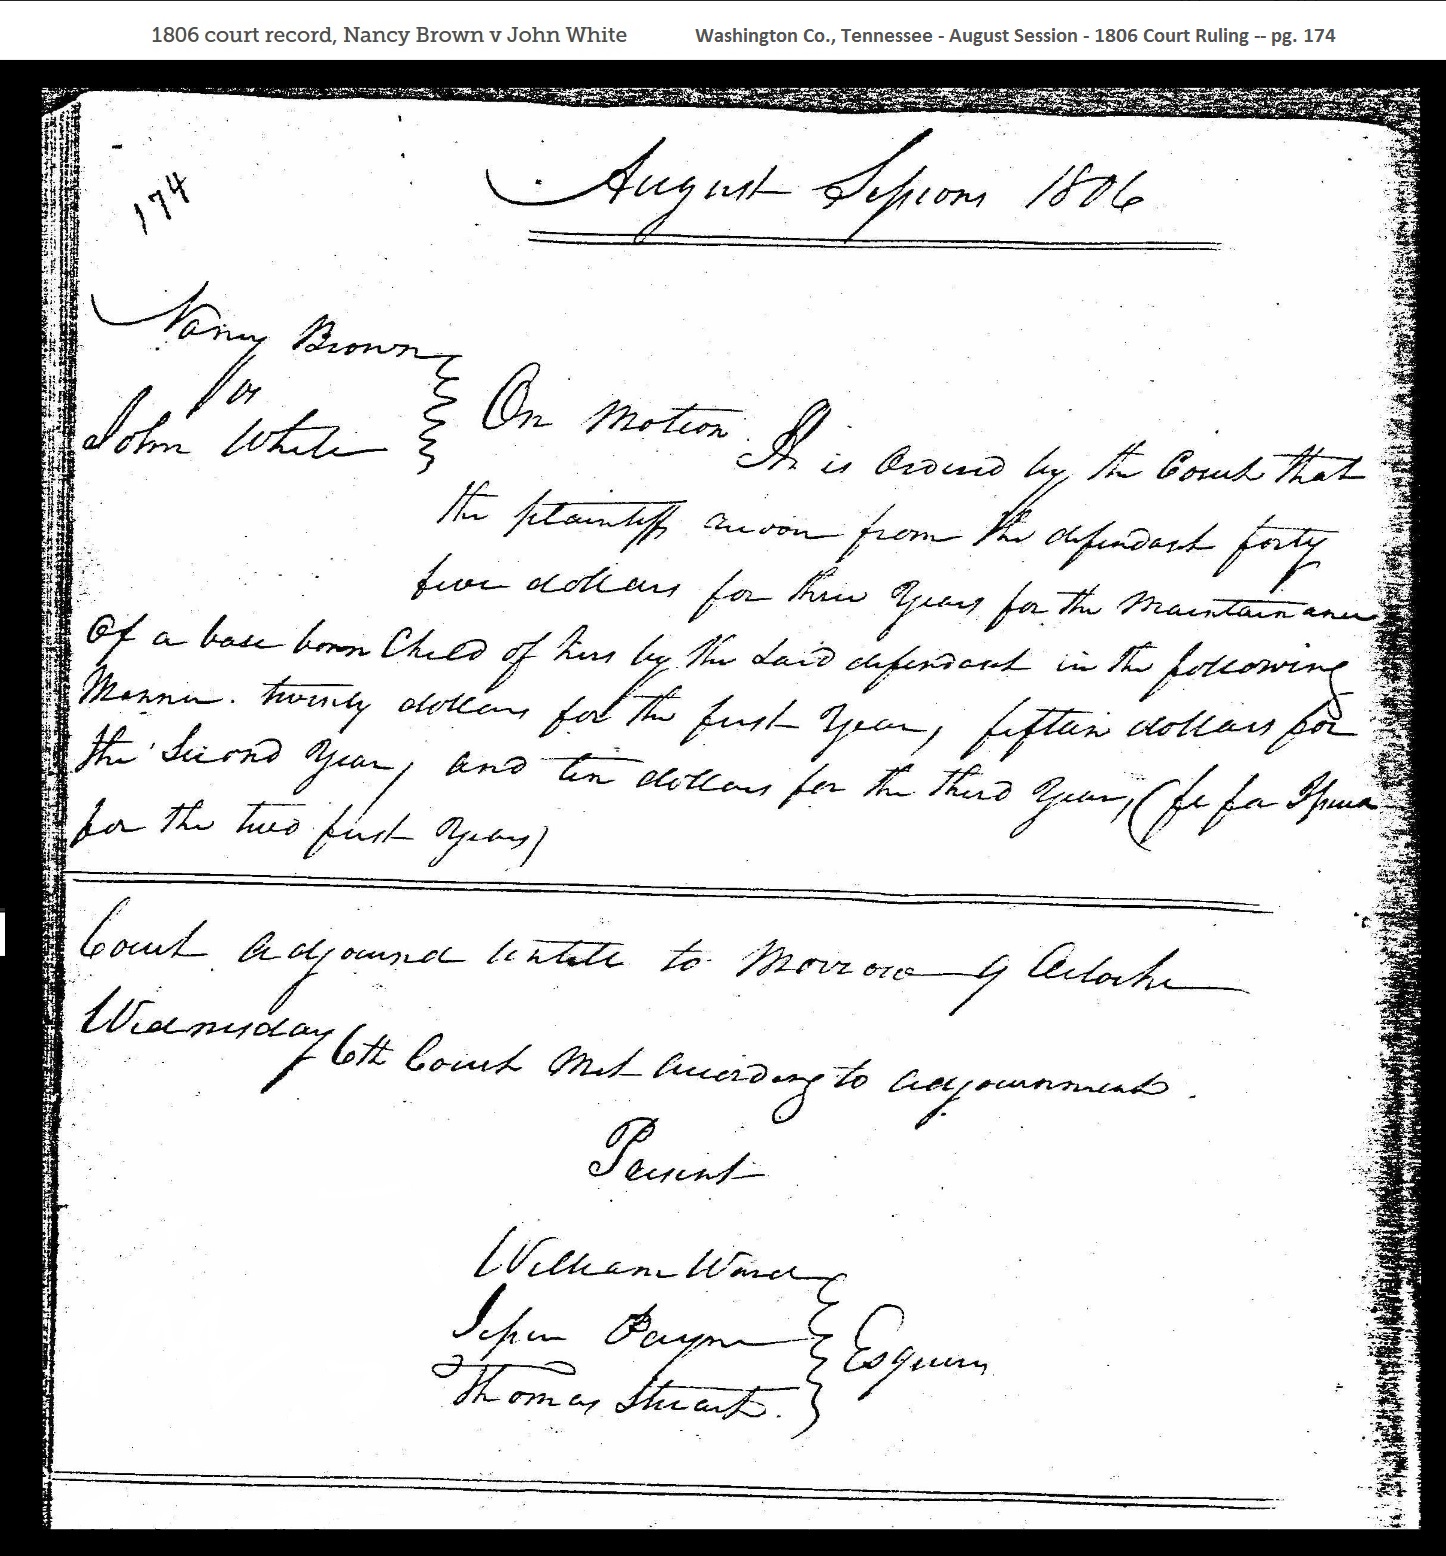 1806 court record, Nancy Brown v John White Washington Co., Tennessee - August Session - 1806 Court Ruling -- pg. 174
174
August Sessions 1806
Nancy Brown
vs
John White
On Motion It is Ordered by the Court that
the plaintiff recover from the defendant forty
five dollars for three Years for the Maintainance
Of a base born Child of hers by the Said defendant in the following
Manner. twenty dollars for the first Year, fifteen dollars for
the Second Year, and ten dollars for the third Year, (fi fa Issued
for the two first Years)
Court adjournd untill to Morrow 9 Oclock
Wednesday 6th Court Met according to adjournment.
Present
William Ward
Jesse Payne
Thomas Stuart.
Esquires